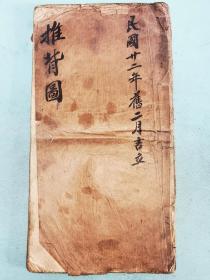 民國廿二年舊二月吉立
推背圖